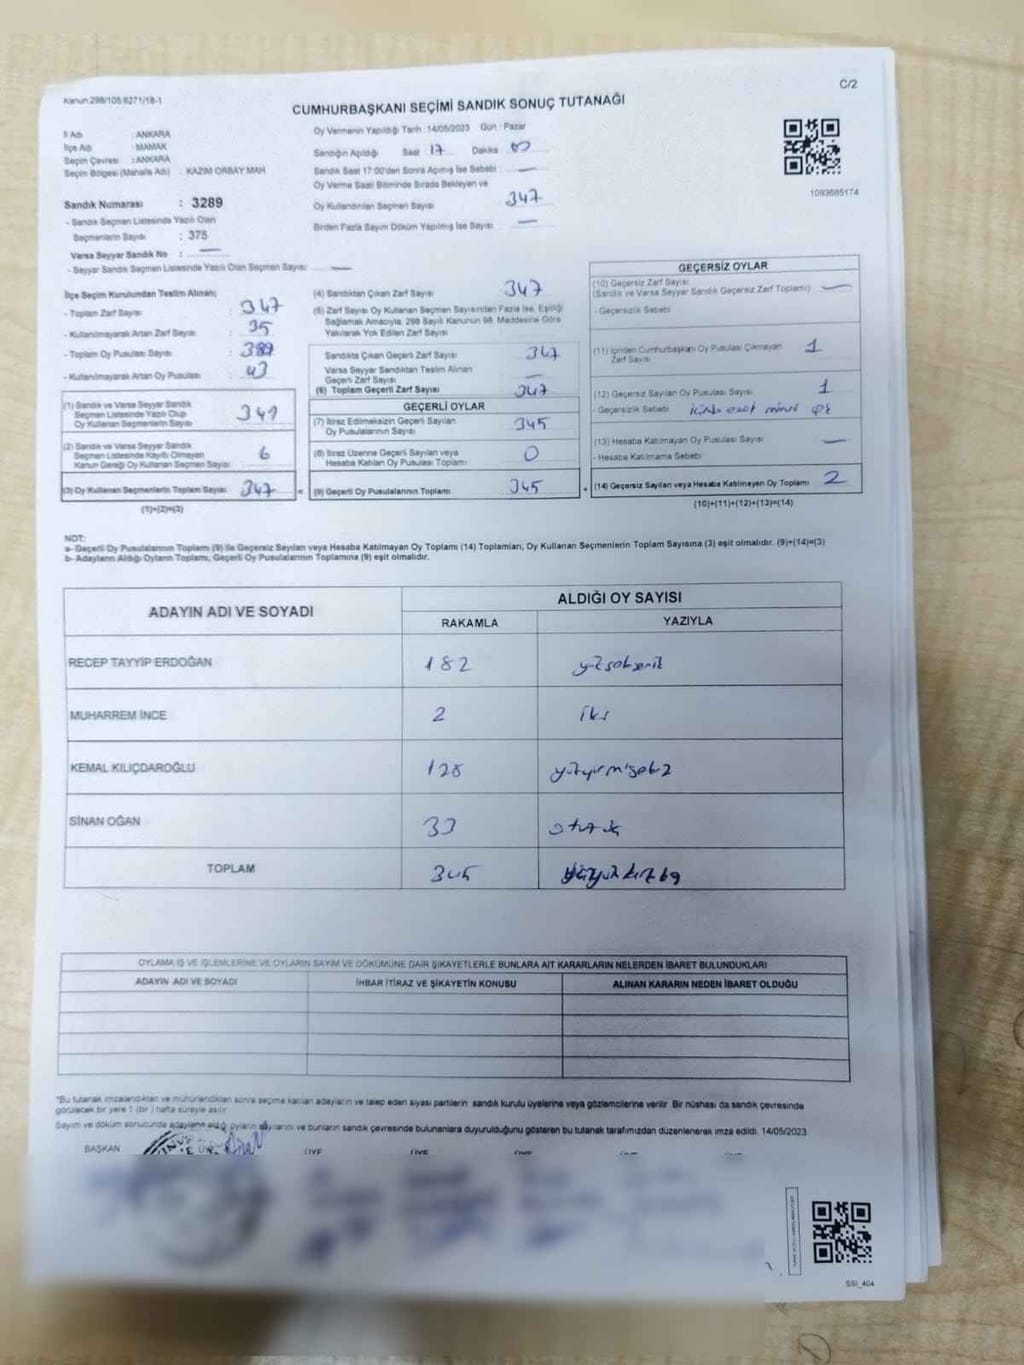 Kanun:298/105;6271/18-1
C/2
CUMHURBAŞKANI SEÇİMİ SANDIK SONUÇ TUTANAĞI
İl Adı : ANKARA
İlçe Adı : MAMAK
Seçim Çevresi : ANKARA
Seçim Bölgesi (Mahalle Adı) : KAZIM ORBAY MAH
Sandık Numarası : 3289
- Sandık Seçmen Listesinde Yazılı Olan
Seçmenlerin Sayısı : 375
Varsa Seyyar Sandık No : —
- Seyyar Sandık Seçmen Listesinde Yazılı Olan Seçmen Sayısı : —
Oy Vermenin Yapıldığı Tarih : 14/05/2023 Gün : Pazar
Sandığın Açıldığı Saat 17 Dakika 00
Sandık Saat 17:00'den Sonra Açılmış İse Sebebi : —
Oy Verme Saati Bitiminde Sırada Bekleyen ve
Oy Kullandırılan Seçmen Sayısı 347
Birden Fazla Sayım Döküm Yapılmış İse Sayısı : —
1093685174
İlçe Seçim Kurulundan Teslim Alınan;
- Toplam Zarf Sayısı : 347
- Kullanılmayarak Artan Zarf Sayısı : 35
- Toplam Oy Pusulası Sayısı : 389
- Kullanılmayarak Artan Oy Pusulası : 43
(1) Sandık ve Varsa Seyyar Sandık
Seçmen Listesinde Yazılı Olup
Oy Kullanan Seçmenlerin Sayısı : 341
(2) Sandık ve Varsa Seyyar Sandık
Seçmen Listesinde Kayıtlı Olmayan
Kanun Gereği Oy Kullanan Seçmen Sayısı : 6
(3) Oy Kullanan Seçmenlerin Toplam Sayısı : 347 =
(1)+(2)=(3)
(4) Sandıktan Çıkan Zarf Sayısı 347
(5) Zarf Sayısı Oy Kullanan Seçmen Sayısından Fazla İse, Eşitliği
Sağlamak Amacıyla, 298 Sayılı Kanunun 98. Maddesine Göre
Yakılarak Yok Edilen Zarf Sayısı
Sandıkta Çıkan Geçerli Zarf Sayısı 347
Varsa Seyyar Sandıktan Teslim Alınan
Geçerli Zarf Sayısı —
(6) Toplam Geçerli Zarf Sayısı 347
GEÇERLİ OYLAR
(7) İtiraz Edilmeksizin Geçerli Sayılan
Oy Pusulalarının Sayısı 345
(8) İtiraz Üzerine Geçerli Sayılan veya
Hesaba Katılan Oy Pusulası Toplamı 0
(9) Geçerli Oy Pusulalarının Toplamı 345 +
GEÇERSİZ OYLAR
(10) Geçersiz Zarf Sayısı
(Sandık ve Varsa Seyyar Sandık Geçersiz Zarf Toplamı) —
- Geçersizlik Sebebi
(11) İçinden Cumhurbaşkanı Oy Pusulası Çıkmayan
Zarf Sayısı 1
(12) Geçersiz Sayılan Oy Pusulası Sayısı 1
- Geçersizlik Sebebi
(13) Hesaba Katılmayan Oy Pusulası Sayısı —
- Hesaba Katılmama Sebebi
(14) Geçersiz Sayılan veya Hesaba Katılmayan Oy Toplamı 2
(10)+(11)+(12)+(13)=(14)
NOT:
a- Geçerli Oy Pusulalarının Toplamı (9) ile Geçersiz Sayılan veya Hesaba Katılmayan Oy Toplamı (14) Toplamları, Oy Kullanan Seçmenlerin Toplam Sayısına (3) eşit olmalıdır. (9)+(14)=(3)
b- Adayların Aldığı Oyların Toplamı, Geçerli Oy Pusulalarının Toplamına (9) eşit olmalıdır.
ADAYIN ADI VE SOYADI
ALDIĞI OY SAYISI
RAKAMLA YAZIYLA
RECEP TAYYİP ERDOĞAN 182
MUHARREM İNCE 2 iki
KEMAL KILIÇDAROĞLU 128 yüzyirmisekiz
SİNAN OĞAN 33 otuzüç
TOPLAM 345
OYLAMA İŞ VE İŞLEMLERİNE VE OYLARIN SAYIM VE DÖKÜMÜNE DAİR ŞİKAYETLERLE BUNLARA AİT KARARLARIN NELERDEN İBARET BULUNDUKLARI
ADAYIN ADI VE SOYADI İHBAR İTİRAZ VE ŞİKAYETİN KONUSU ALINAN KARARIN NEDEN İBARET OLDUĞU
*Bu tutanak imzalandıktan ve mühürlendikten sonra seçime katılan adayların ve talep eden siyasi partilerin sandık kurulu üyelerine veya gözlemcilerine verilir. Bir nüshası da sandık çevresinde
görülecek bir yere 1 (bir) hafta süreyle asılır
Sayım ve döküm sonucunda adayların aldığı oyların sayılarını ve bunların sandık çevresinde bulunanlara duyurulduğunu gösteren bu tutanak tarafımızdan düzenlenerek imza edildi. 14/05/2023
BAŞKAN ÜYE ÜYE
SSI_404